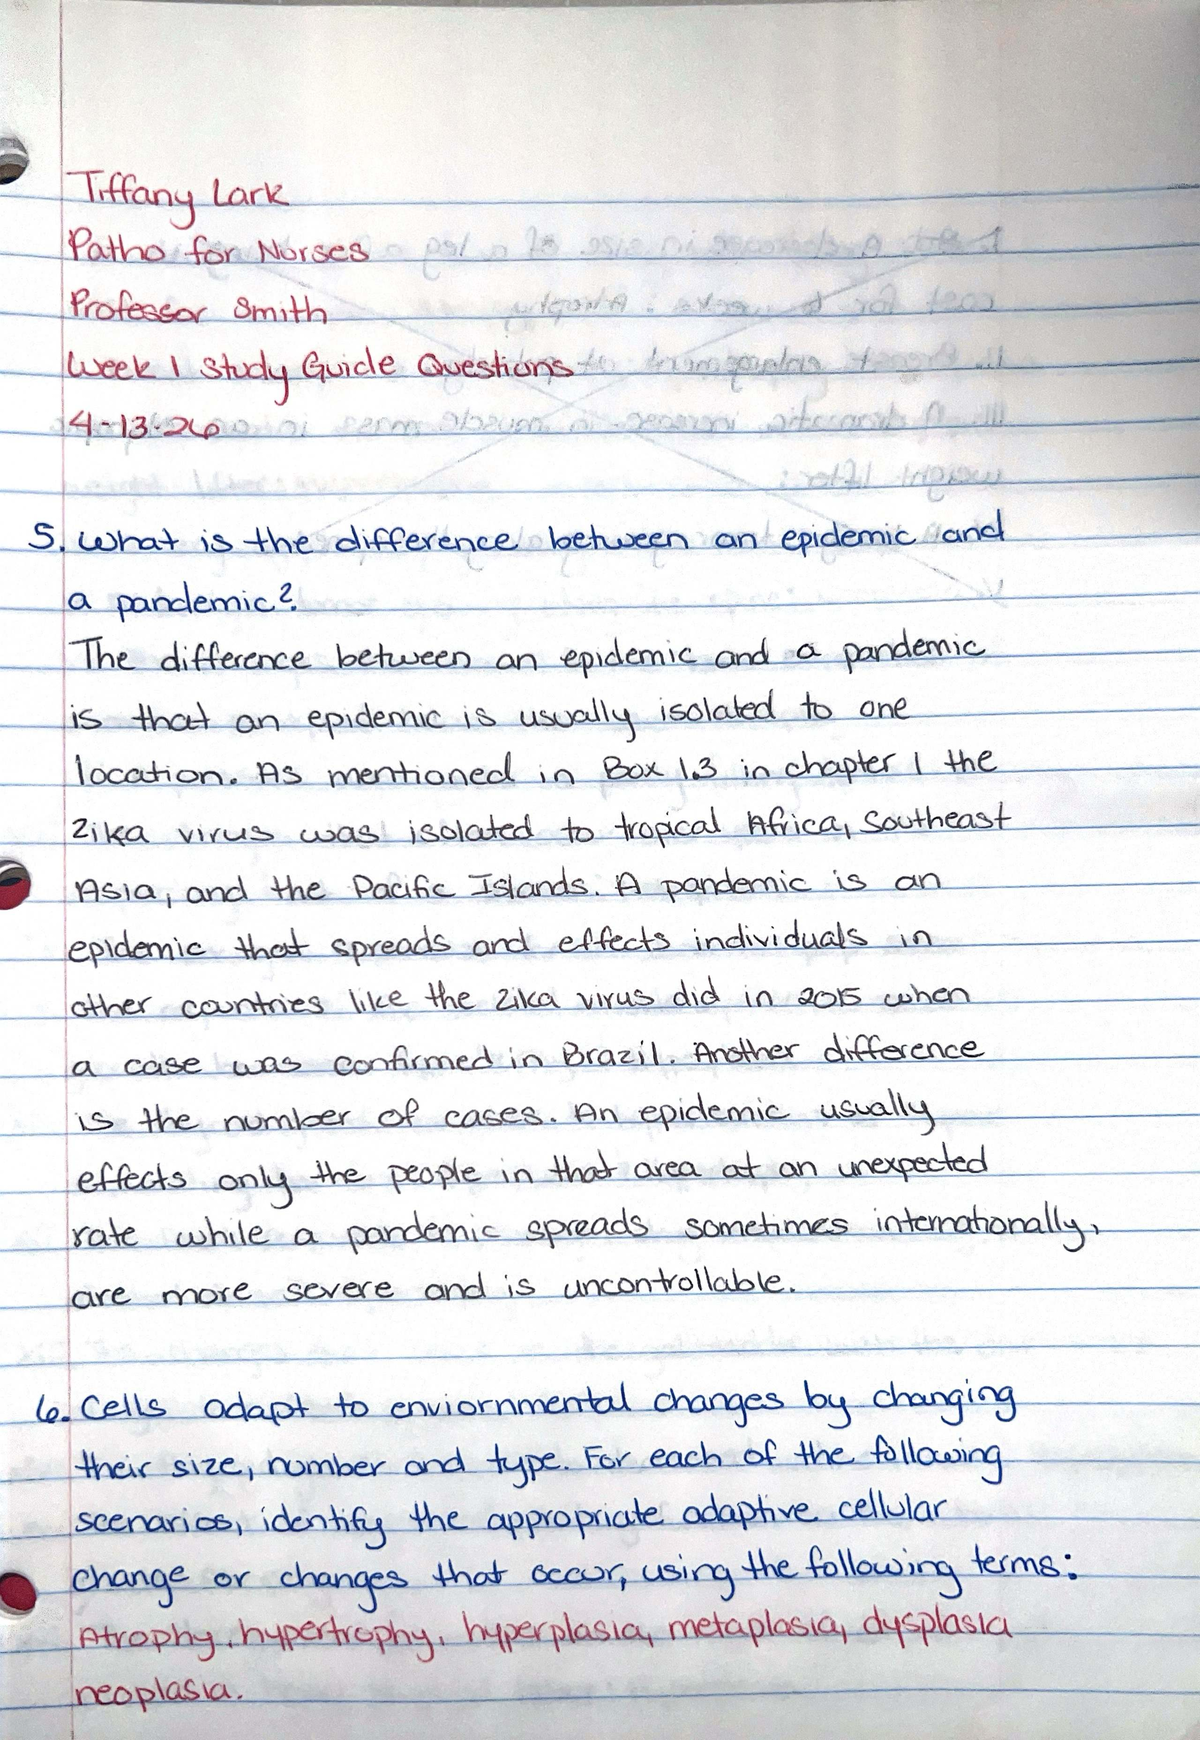 Tiffany Lark
Patho for Nurses
Professor Smith
Week 1 Study Guide Questions
4-13-26
5. What is the difference between an epidemic and
a pandemic?
The difference between an epidemic and a pandemic
is that an epidemic is usually isolated to one
location. As mentioned in Box 1.3 in chapter 1 the
Zika virus was isolated to tropical Africa, Southeast
Asia, and the Pacific Islands. A pandemic is an
epidemic that spreads and effects individuals in
other countries like the Zika virus did in 2015 when
a case was confirmed in Brazil. Another difference
is the number of cases. An epidemic usually
effects only the people in that area at an unexpected
rate while a pandemic spreads sometimes internationally,
are more severe and is uncontrollable.
6. Cells adapt to enviornmental changes by changing
their size, number and type. For each of the following
scenarios, identify the appropriate adaptive cellular
change or changes that occur, using the following terms:
Atrophy, hypertrophy, hyperplasia, metaplasia, dysplasia
neoplasia.